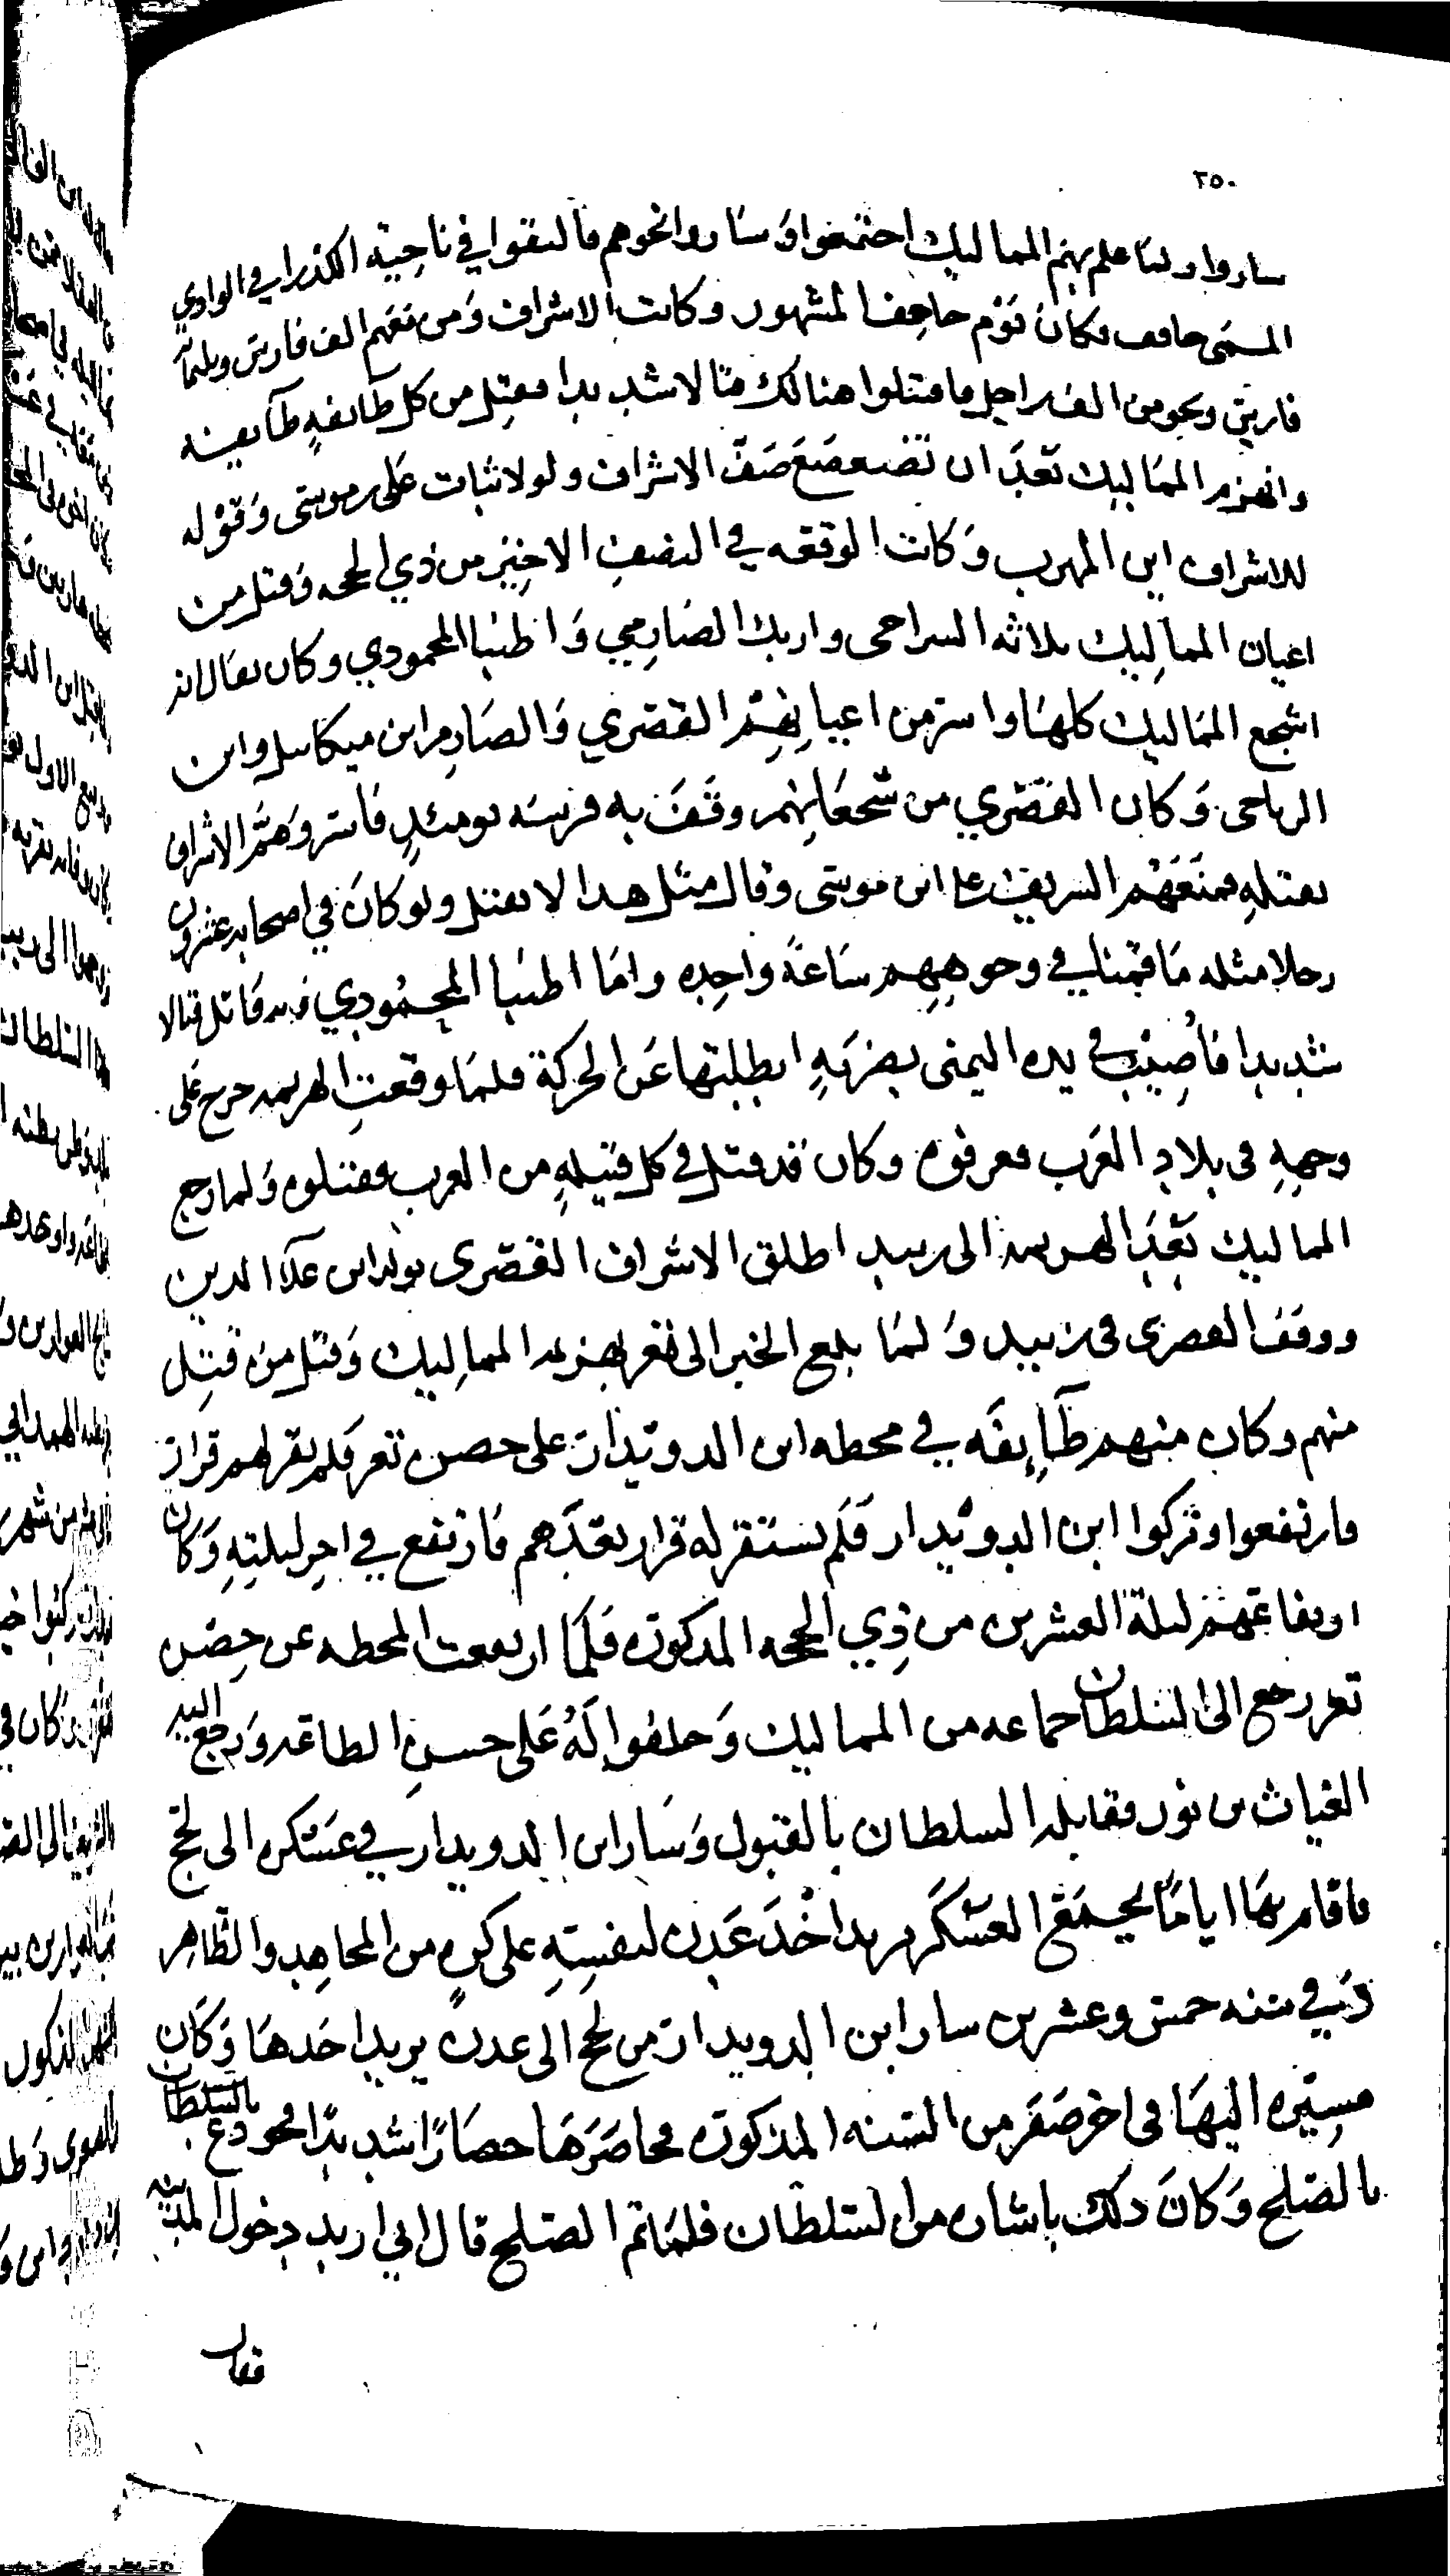 ٢٥٠
ساروا ولما علم بهم المماليك اجتمعوا وساروا نحوهم فالتقوا في ناحية الكدرا في الوادي
المسمى جاحف وكان يوم جاحف المشهور وكانت الاشراف ومن معهم الف فارس وثلثمائة
فارس ونحو من الف راجل فاقتتلوا هنالك قتالا شديدا فقتل من كل طائفة طايفه
وانهزم المماليك بعد ان تضعضع صف الاشراف ولولا ثبات على بن موسى وقوله
للاشراف اين المهرب وكانت الوقعه في النصف الاخير من ذي الحجه وقتل من
اعيان المماليك ثلاثه السراجى واربك الصارمي واطنبا المحمودي وكان يقال انه
اشجع المماليك كلها واسر من اعيانهم القصري والصارم ابن ميكاييل وابن
الرياحى وكان القصري من شجعانهم وقف به فرسه يوميذ فاسر وهم الاشراف
بقتله فمنعهم الشريف على ابن موسى وقال مثل هذا لا يقتل ولو كان في اصحابه عشرون
رجلا مثله ما قمنا في وجوههم ساعة واحده واما اطنبا المحمودي فانه قاتل قتالا
شديدا فاصيب في يده اليمنى بضربه ابطلتها عن الحركة فلما وقعت الهزيمه خرج على
وجهه في بلاد العرب فعرفوه وكان قد قتل في كل قبيله من العرب فقتلوه ولما رجع
المماليك بعد الهزيمه الى زبيد اطلق الاشراف القصرى بولد ابن علاء الدين
ووقف القصرى في زبيد ولما بلغ الخبر الى تعز بهزيمه المماليك وقتل من قتل
منهم وكان منهم طايفه في محطه ابن الدويدار على حصن تعز فلم يقر لهم قرار
فارتفعوا وتركوا ابن الدويدار فلم يستقر له قرار بعدهم فارتفع في اخر ليلته وكان
ارتفاعهم ليلة العشرين من ذي الحجه المذكوره فلما ارتفعت المحطه عن حصن
تعز رجع الى السلطان جماعه من المماليك وحلفوا له على حسن الطاعه ورجع اليه
الغياث بن نور فقابله السلطان بالقبول وسار ابن الدويدار في عسكره الى لحج
فاقام بها اياما يجمع العسكر يريد اخذ عدن لنفسه على كره من المجاهد والظاهر
وفي سنه خمس وعشرين سار ابن الدويدار من لحج الى عدن يريد اخذها وكان
مسيره اليها في اخر صفر من السنه المذكوره فحاصرها حصارا شديدا بالسلطان
بالصلح وكان ذلك باشاره من السلطان فلما تم الصلح قال اني اريد دخول المدينه
فقال